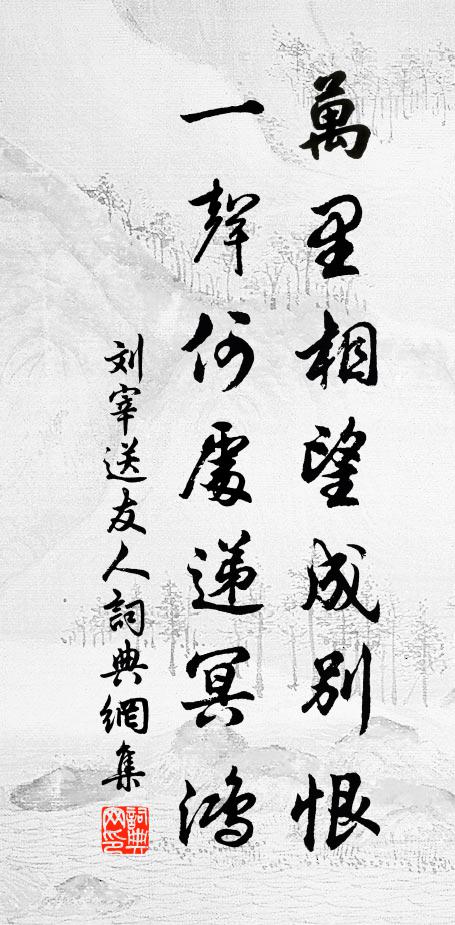 萬里相望成別恨
一聲何處遞冥鴻
刘宰送友人詞典網集
詞典
网印